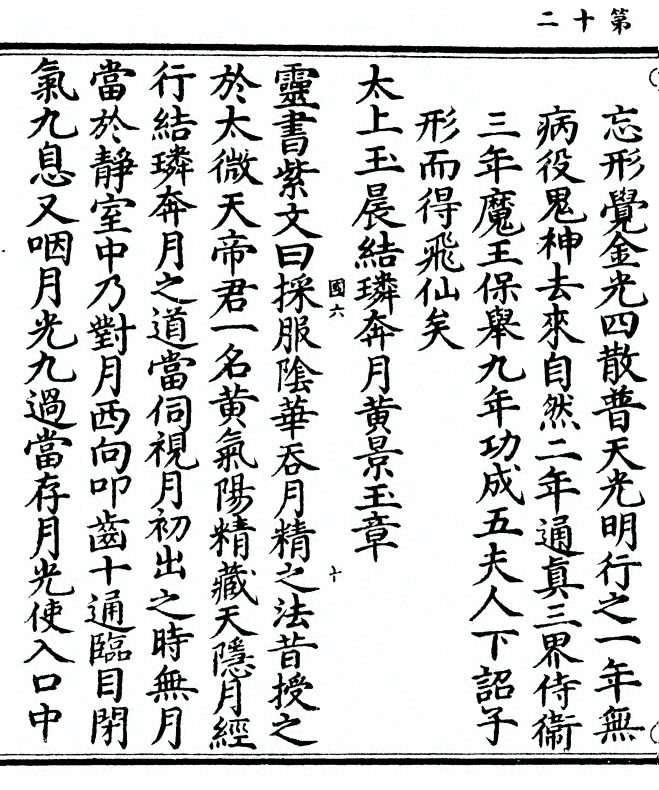 第十二
忘形覺金光四散普天光明行之一年無
病役鬼神去來自然二年通眞三界侍衞
三年魔王保舉九年功成五夫人下詔子
形而得飛仙矣
太上玉晨結璘奔月黃景玉章
國六
十
靈書紫文曰採服陰華吞月精之法昔授之
於太微天帝君一名黃氣陽精藏天隱月經
行結璘奔月之道當伺視月初出之時無月
當於靜室中乃對月西向叩齒十通臨目閉
氣九息又咽月光九過當存月光使入口中